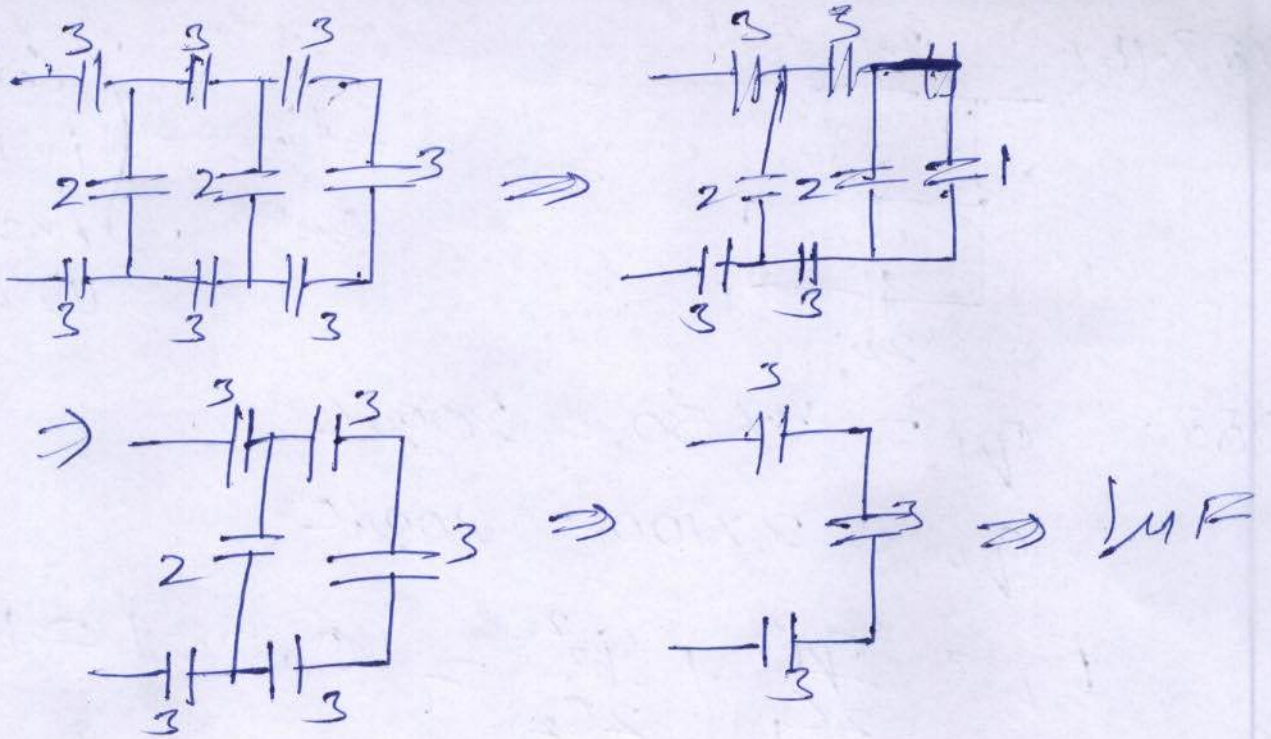 3 3 3
2 2 3
3 3 3
⇒
3 3
2 2 1
3 3
⇒
3 3
2 3
3 3
⇒
3
3
3
⇒ 1μF